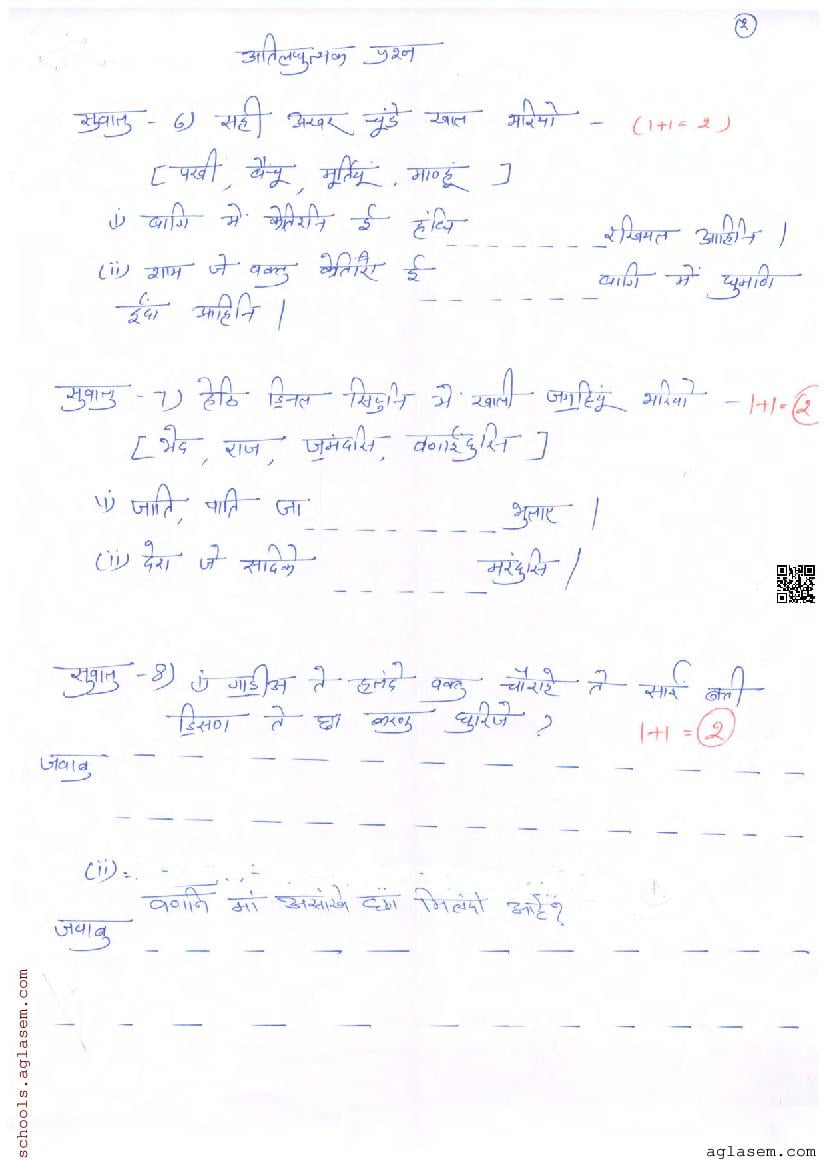 (२)
अतिलघुत्मक प्रश्न
सुवालु - 6) सही अखर चूंडे खाल भरियो - (1+1 = 2)
[ पखी, बैंचू, मूर्तियूं, माण्हूं ]
i) बागि में केतिरनि ई हंधि _ _ _ _ _ _ _ रखियल आहिनि ।
(ii) शाम जे वक्तु केतिराई _ _ _ _ _ _ बागि में घुमणि
ईंदा आहिनि ।
सुवालु - 7) हेठि ड्रिनल सिटुनि में खाली जग॒हियूं भरियो - 1+1 = (2)
[ भेद, राज, जुमंदासि, वणाईंदुसि ]
i) जाति, पाति जा _ _ _ _ _ _ _ _ भुलाए ।
(ii) देश जे सदिके _ _ _ _ _ _ मरंदुसि ।
सुवालु - 8) i) गाडीअ ते हलंदे वक्तु चौराहे ते साई बत्ती
ड्रिसण ते छा करणु घुरिजे ?
1+1 = (2)
जवाबु _ _ _ _ _ _ _ _ _ _ _ _ _ _
_ _ _ _ _ _ _ _ _ _ _ _ _ _
(ii) :-
वणनि मां असांखे छा मिलंदो आहे?
जवाबु _ _ _ _ _ _ _ _ _ _ _ _ _
_ _ _ _ _ _ _ _ _ _ _ _ _ _
schools.aglasem.com
aglasem.com